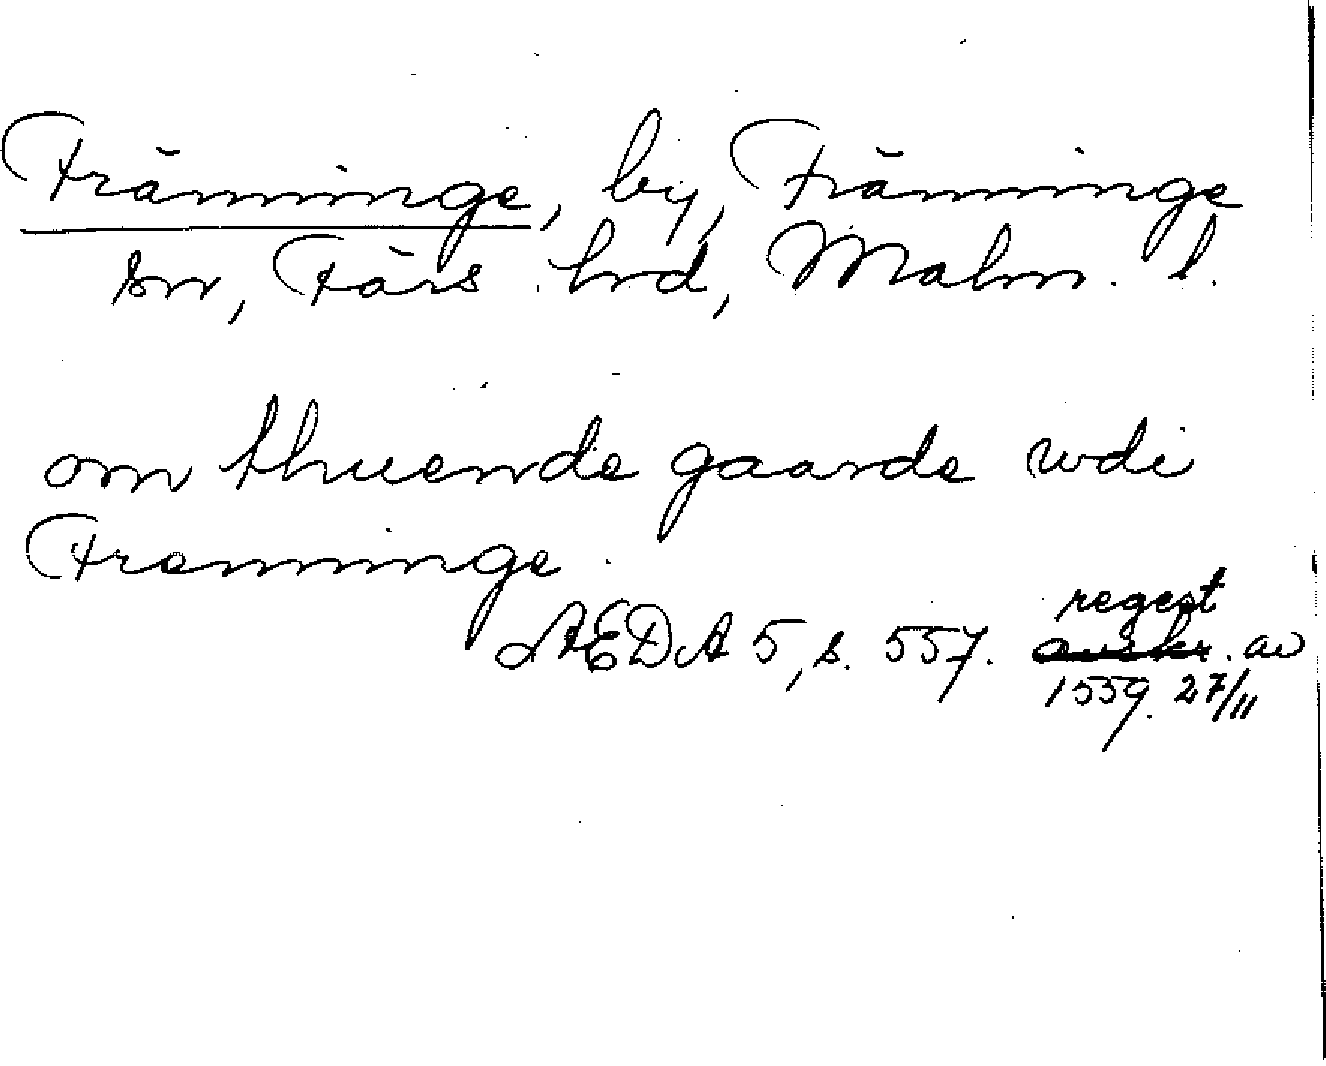 Fränninge, by, Fränninge
sn, Färs hrd, Malm. l.
om thuende gaarde udi
Frenninge.
ÆDA 5, s. 557. regest av
1559. 27/11